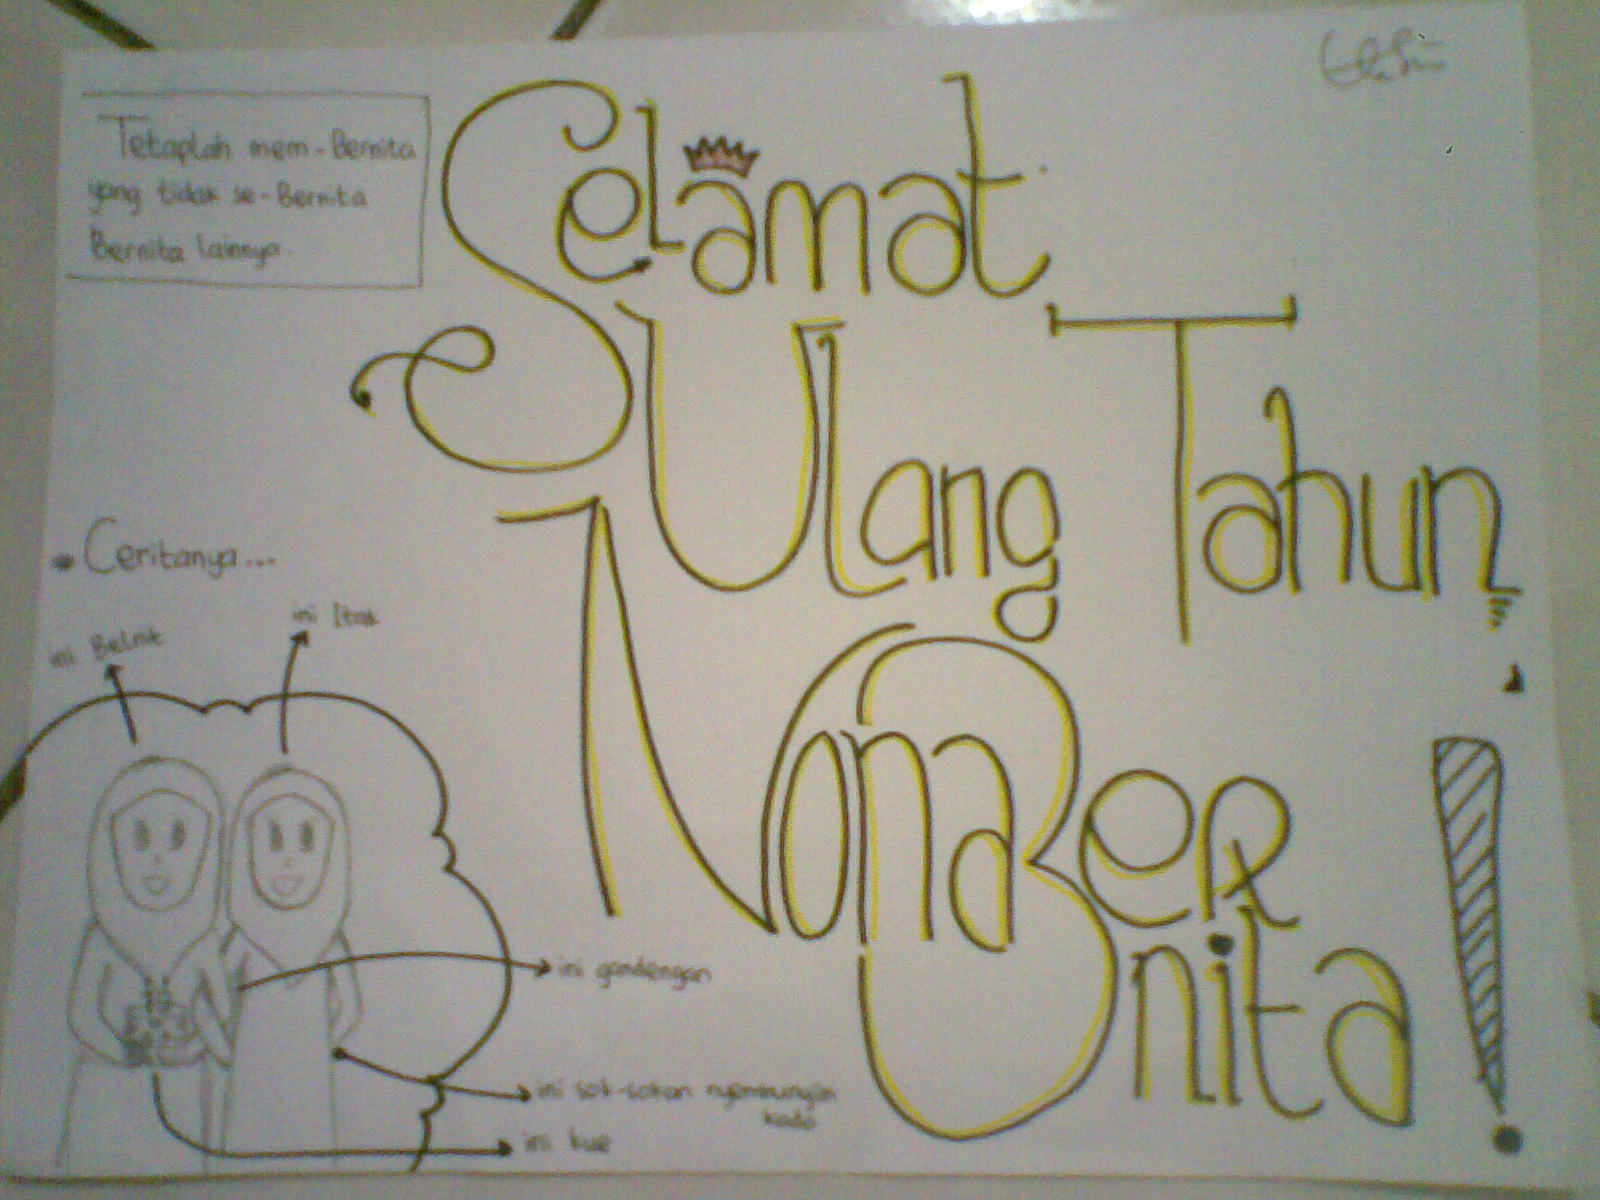 Tetaplah mem-Bernita
yang tidak se-Bernita
Bernita lainnya.
Selamat
Ulang Tahun
Nona Bernita!
* Ceritanya...
ini Belnit
ini Itak
ini gandengan
ini sok-sokan nyembunyiin
kado
ini kue